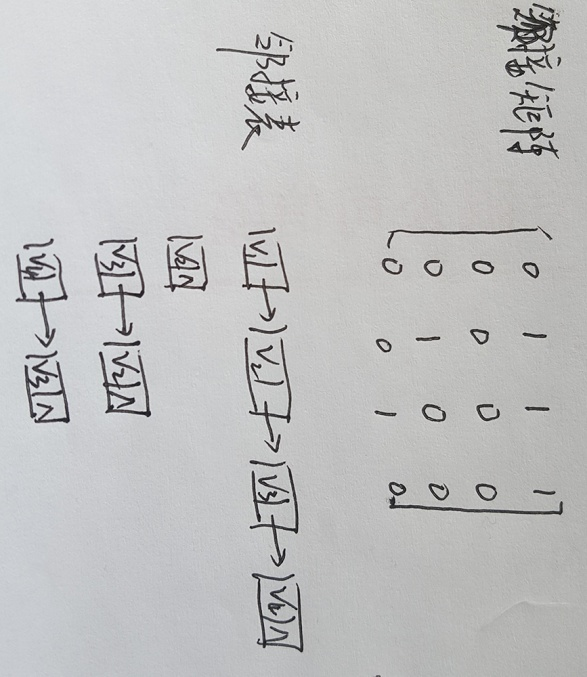 邻接矩阵
0 1 1 1
0 0 0 0
0 1 0 0
0 0 1 0
邻接表
V1 → V2 → V3 → V4 ∧
V2 ∧
V3 → V2 ∧
V4 → V3 ∧